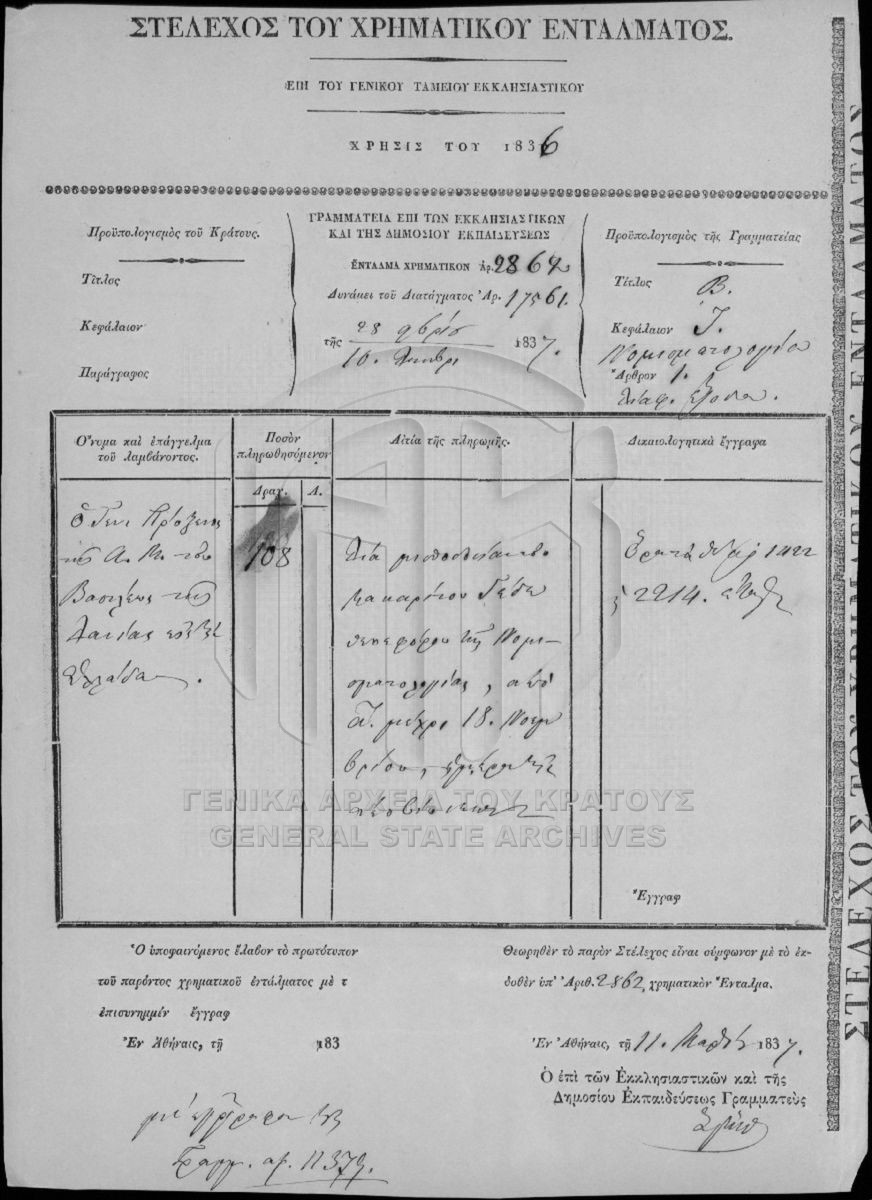 ΣΤΕΛΕΧΟΣ ΤΟΥ ΧΡΗΜΑΤΙΚΟΥ ΕΝΤΑΛΜΑΤΟΣ.
ΕΠΙ ΤΟΥ ΓΕΝΙΚΟΥ ΤΑΜΕΙΟΥ ΕΚΚΛΗΣΙΑΣΤΙΚΟΥ
ΧΡΗΣΙΣ ΤΟΥ 1836
Προϋπολογισμὸς τοῦ Κράτους.
Τίτλος
Κεφάλαιον
Παράγραφος
ΓΡΑΜΜΑΤΕΙΑ ΕΠΙ ΤΩΝ ΕΚΚΛΗΣΙΑΣΤΙΚΩΝ
ΚΑΙ ΤΗΣ ΔΗΜΟΣΙΟΥ ΕΚΠΑΙΔΕΥΣΕΩΣ
ΕΝΤΑΛΜΑ ΧΡΗΜΑΤΙΚΟΝ Ἀρ. 2862
Δυνάμει τοῦ Διατάγματος Ἀρ. 17561.
28 9βρίου
τῆς 1837.
16.
Προϋπολογισμὸς τῆς Γραμματείας
Τίτλος Β.
Κεφάλαιον
Νομισματολογία
Ἄρθρον 1.
Διάφ. ἔξοδα.
Ὄνομα καὶ ἐπάγγελμα
τοῦ λαμβάνοντος.
Ποσὸν
πληρωθησόμενον
Δραχ. Λ.
Αἰτία τῆς πληρωμῆς.
Δικαιολογητικὰ ἔγγραφα
Ὁ Γεν. Πρόξενος
τῆς Α. Μ. τοῦ
Βασιλέως τῆς
Δανίας εἰς τὴν
Ἑλλάδα.
108
Διὰ μισθοδοσίαν τοῦ
μακαρίτου
τῆς Νομι-
σματολογίας, ἀπὸ
μέχρι 18. Νοεμ
βρίου, ἡμέραν τῆς
1422
2214.
Ἔγγραφ
Ὁ ὑποφαινόμενος ἔλαβον τὸ πρωτότυπον
τοῦ παρόντος χρηματικοῦ ἐντάλματος μὲ τ
ἐπισυνημμέν ἔγγραφ
Ἐν Ἀθήναις, τῇ 183
Θεωρηθὲν τὸ παρὸν Στέλεχος εἶναι σύμφωνον μὲ τὸ ἐκ-
δοθὲν ὑπ' Ἀριθ. 2862, χρηματικὸν Ἔνταλμα.
Ἐν Ἀθήναις, τῇ 11. Μαρτίου 1837.
Ὁ ἐπὶ τῶν Ἐκκλησιαστικῶν καὶ τῆς
Δημοσίου Ἐκπαιδεύσεως Γραμματεὺς
Γραμμ. ἀρ. 11379.
ΓΕΝΙΚΑ ΑΡΧΕΙΑ ΤΟΥ ΚΡΑΤΟΥΣ
GENERAL STATE ARCHIVES
ΣΤΕΛΕΧΟΣ ΤΟΥ ΧΡΗΜΑΤΙΚΟΥ ΕΝΤΑΛΜΑΤΟΣ